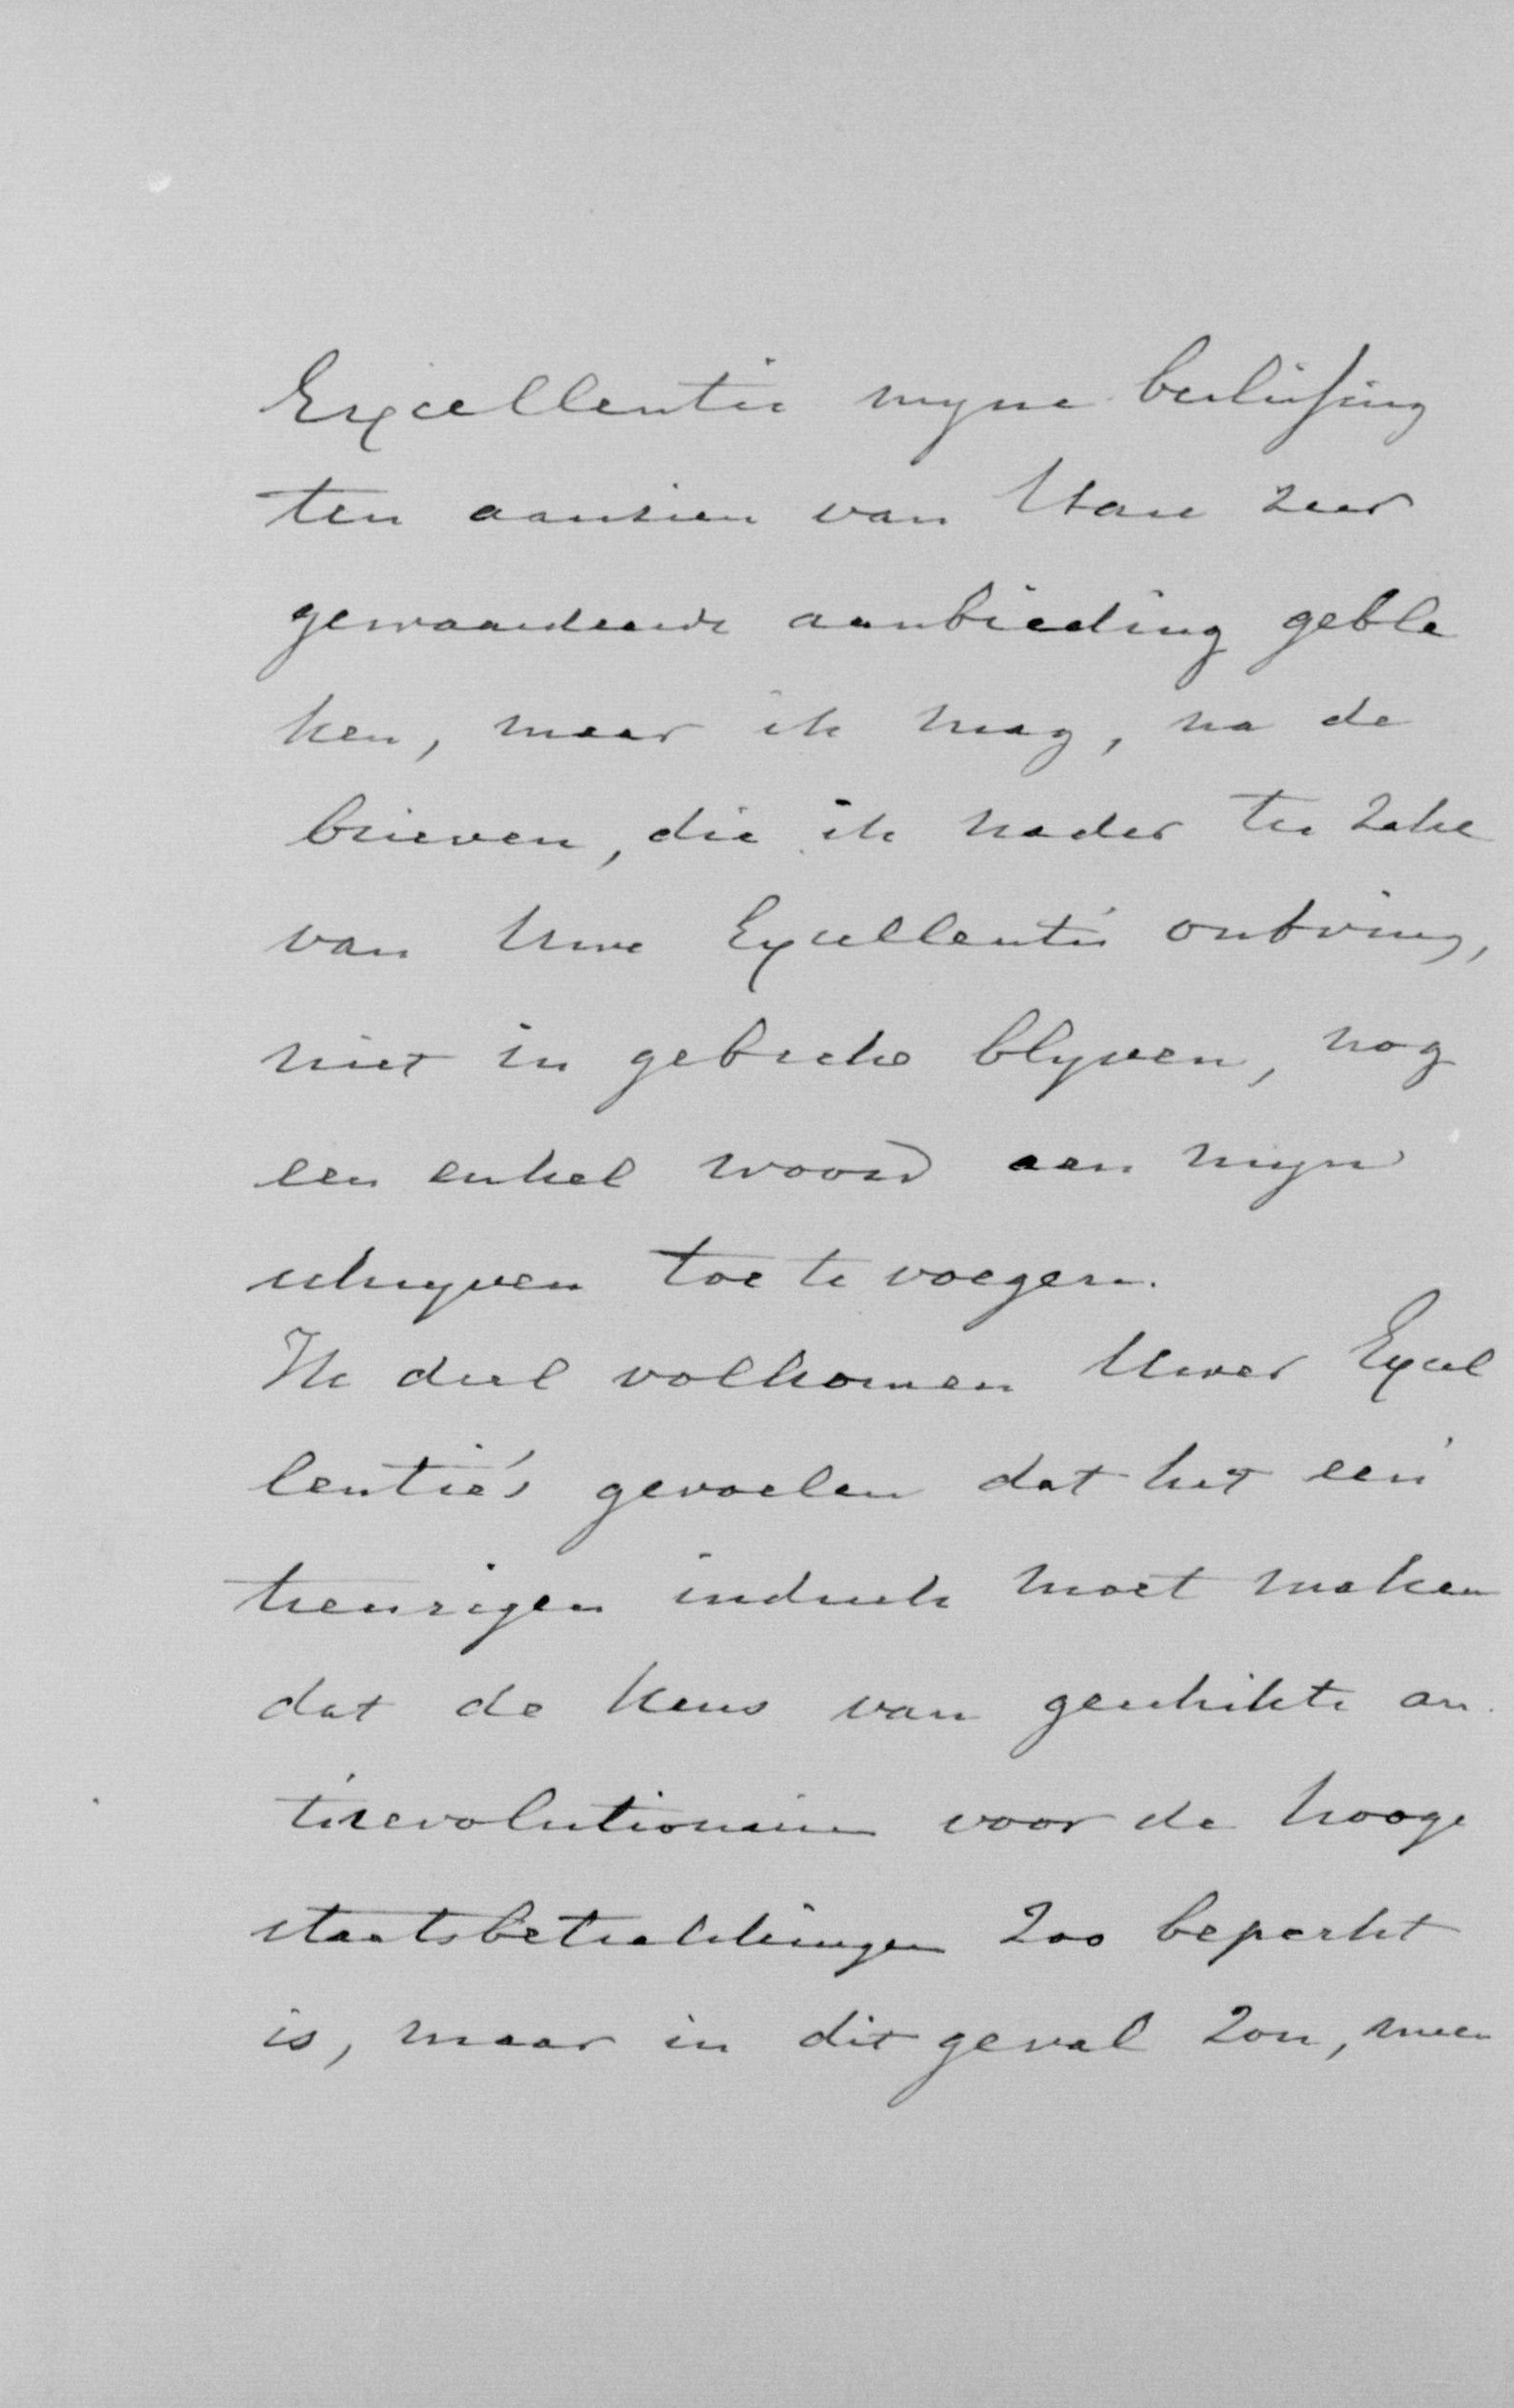 Excellentie myne beslissing
ten aanzien van Hare zeer
gewaardeerde aanbieding geble
ken, maar ik mag, na de
brieven, die ik nader ter zake
van Uwe Excellentie ontving,
niet in gebreke blyven, nog
een enkel woord aan myn
schryven toe te voegen.
Ik deel volkomen Uwer Excel
lentie's gevoelen dat het een
treurigen indruk moet maken
dat de keus van geschikte an
tirevolutionairen voor de hooge
staatsbetrekkingen zoo beperkt
is, maar in dit geval zou, meen